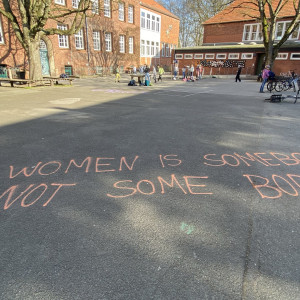 WOMEN IS SOMEBO
NOT SOME BOD